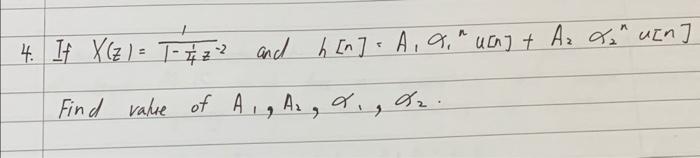 4. If X(z) = 1 / (1 - 1/4 z⁻²) and h[n] = A₁ α₁ⁿ u[n] + A₂ α₂ⁿ u[n]
Find value of A₁, A₂, α₁, α₂.